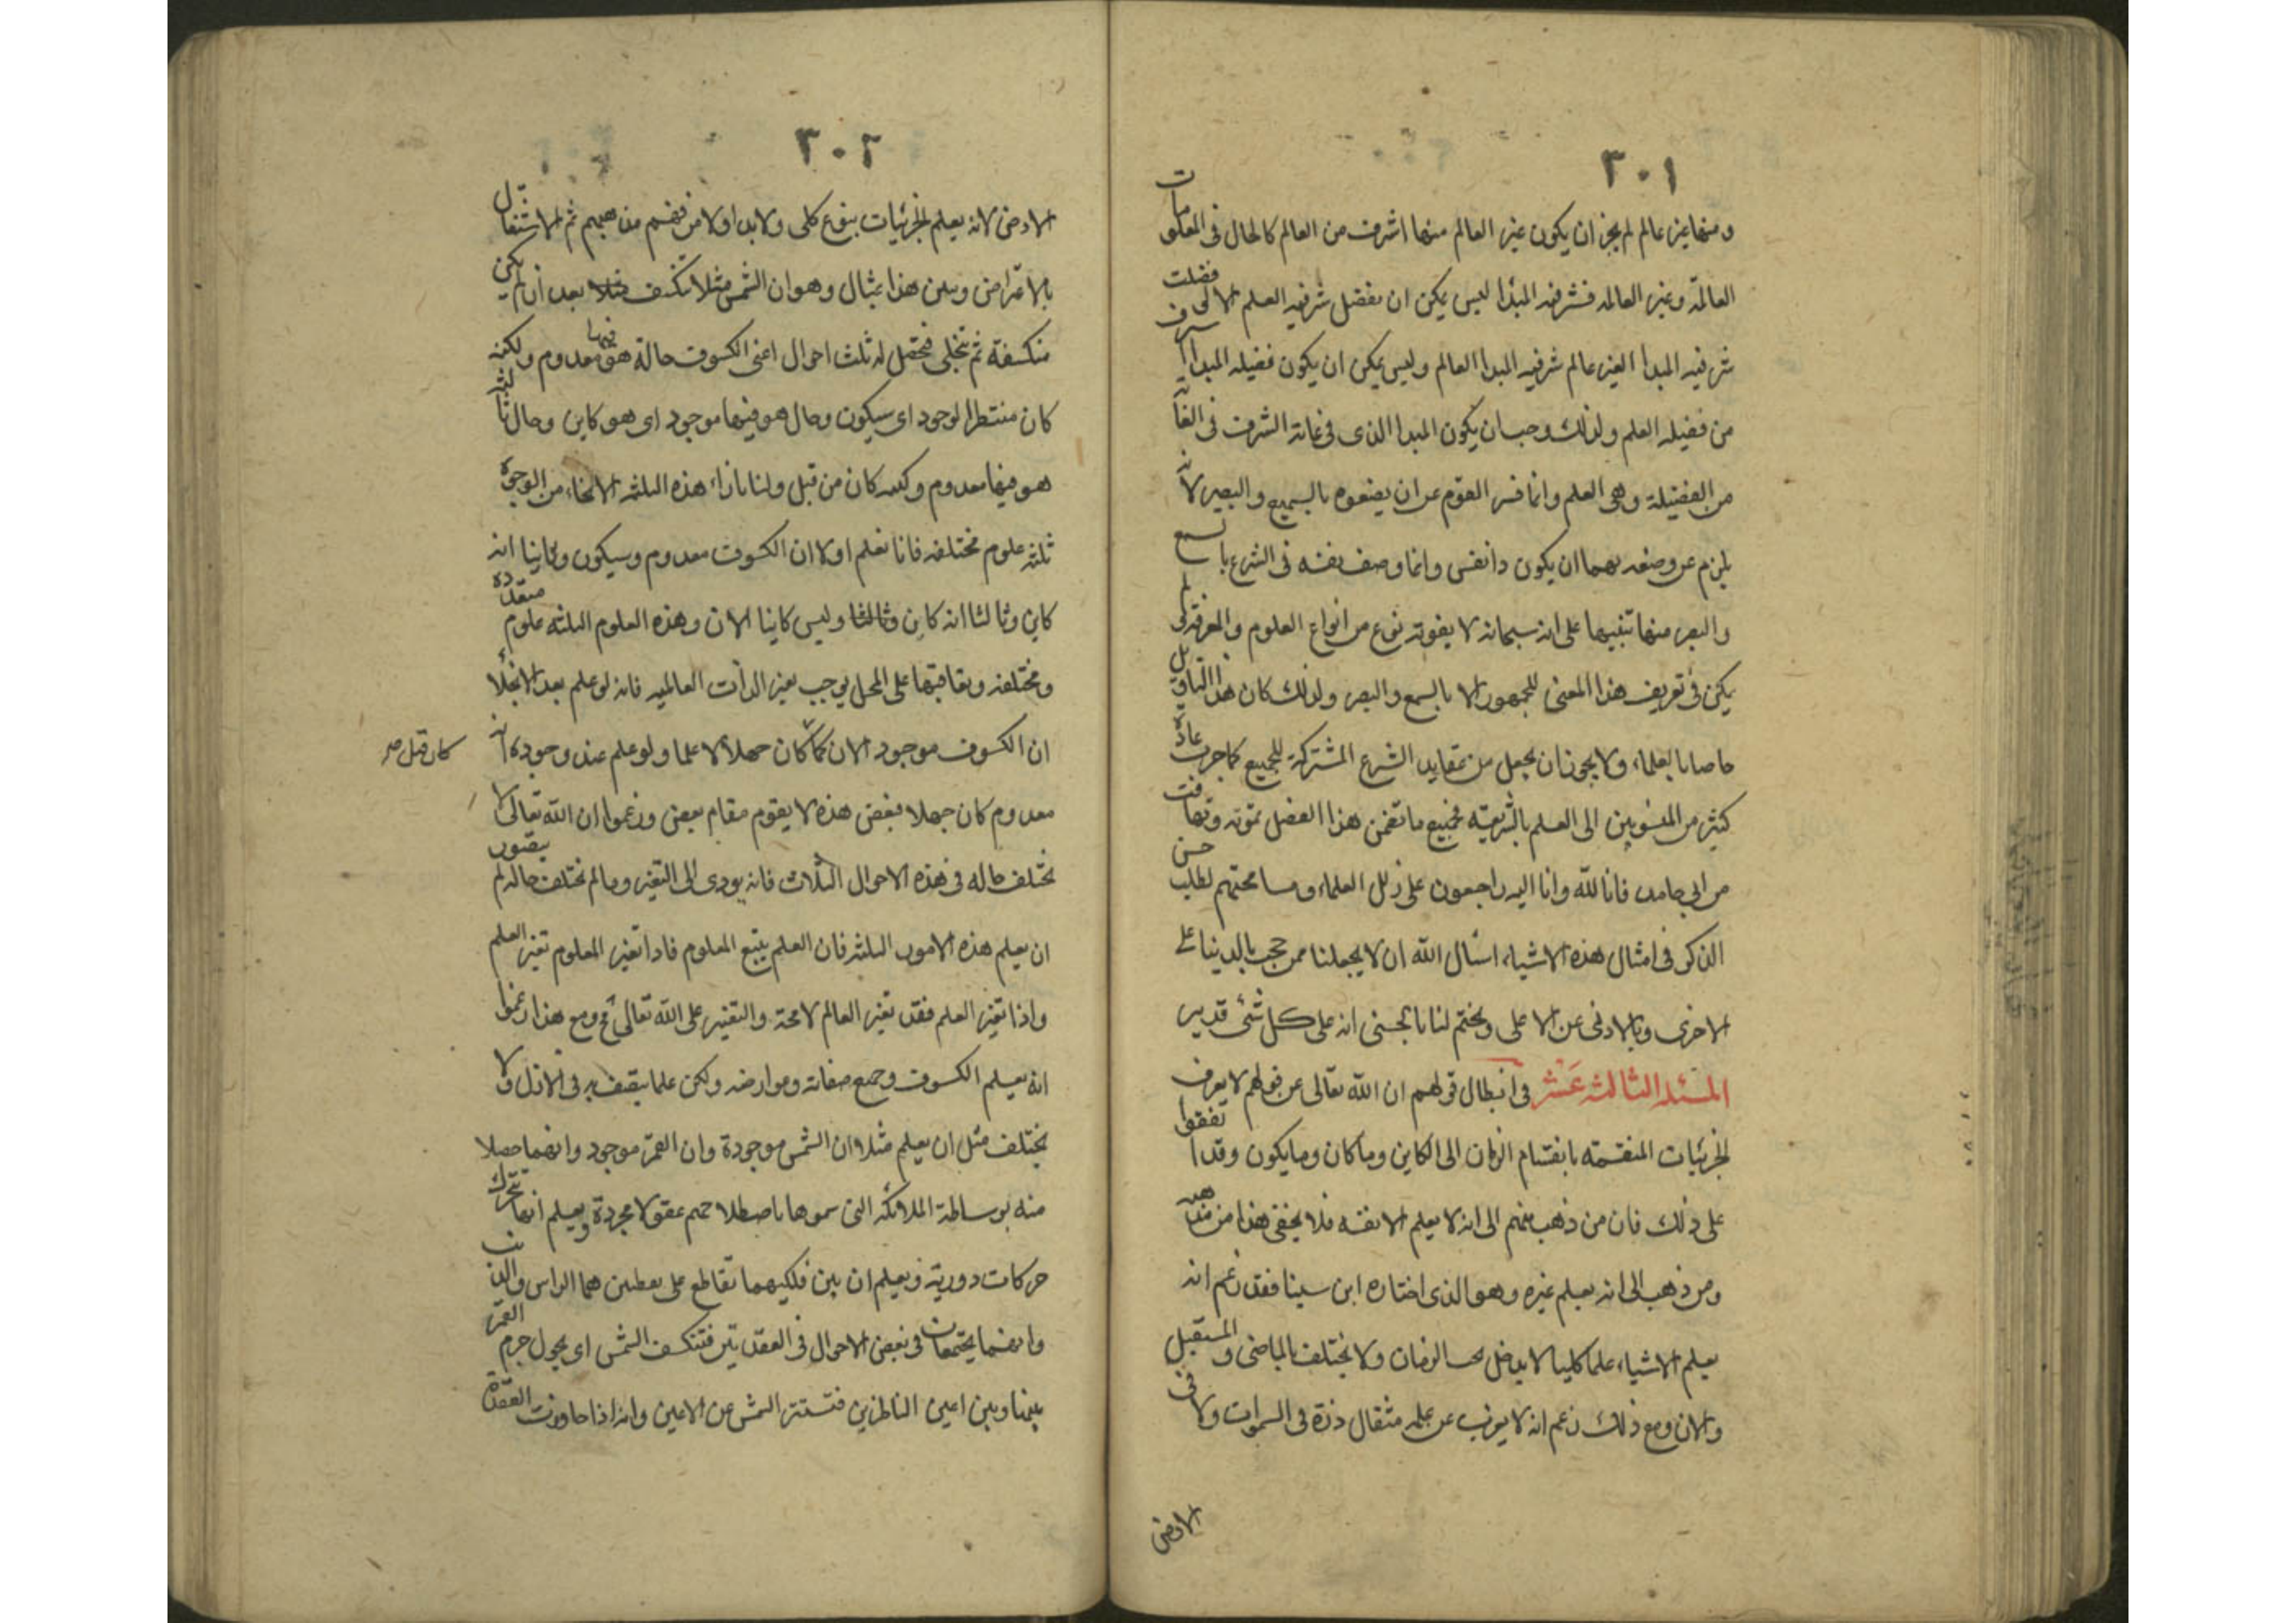 ٣٠١
ومنها غير عالم لم يجز ان يكون غير العالم منها اشرف من العالم كالحال فى المعلومات
العالمة وغير العالمه فشرفيه المبدا ليس يمكن ان يفضل شرفيه العلم الا لو فضلت
شرفيه المبدا الغير عالم شرفيه المبدا العالم وليس يمكن ان يكون فضيله المبدا اشرف
من فضيله العلم ولذلك وجب ان يكون المبدا الذى فى غاية الشرف فى الغاية
من الفضيلة وهى العلم وانما فر القوم عن ان يصفوه بالسميع والبصير لانه
يلزم عن وصفه بهما ان يكون ذا نفس وانما وصف نفسه فى الشرع بالسمع
والبصر منها تنبيها على انه سبحانه لا يفوته نوع من انواع العلوم والمعرفة ولم
يكن فى تعريف هذا المعنى للجمهور الا بالسمع والبصر ولذلك كان هذا التاويل
خاصا بالعلماء ولا يجوز ان يجعل من عقايد الشرع المشتركة للجميع كما جرت عادة
كثير من المنسوبين الى العلم بالشريعة فجميع ما تضمن هذا الفصل تمويه وتهافت
من ابى حامد فانا لله وانا اليه راجعون على زلل العلماء ومسامحتهم لطلب حسن
الذكر فى امثال هذه الاشياء اسأل الله ان لا يجعلنا ممن حجب بالدنيا على
الاخرى وبالادنى عن الاعلى ويختم لنا بالحسنى انه على كل شئ قدير
المسئله الثالثه عشر فى ابطال قولهم ان الله تعالى عن قولهم لا يعرف
الجزئيات المنقسمه بانقسام الزمان الى الكاين وما كان وما يكون وقد اتفقوا
على ذلك فان من ذهب منهم الى انه لا يعلم الا نفسه فلا يخفى هذا من مذهبه
ومن ذهب الى انه يعلم غيره وهو الذى اختاره ابن سينا فقد زعم انه
يعلم الاشياء علما كليا لا يدخل تحت الزمان ولا يختلف بالماضى والمستقبل
والان ومع ذلك زعم انه لا يعزب عن علمه مثقال ذرة فى السموات ولا فى
الارض
٣٠٢
الارض لانه يعلم الجزئيات بنوع كلى ولا بد اولا من فهم مذهبهم ثم الاشتغال
بالاعتراض ونبين هذا بمثال وهو ان الشمس مثلا تنكسف مثلا بعد ان لم يكن
منكسفة ثم تتجلى فتحصل له ثلث احوال اعنى الكسوف حالة هو فيها معدوم ولكنه
كان منتظر الوجود اى سيكون وحال هو فيها موجود اى هو كاين وحال ثالثة
هو فيها معدوم ولكنه كان من قبل ولنا بازاء هذه الثلثه الانحاء من الوجوه
ثلثه علوم مختلفه فانا نعلم اولا ان الكسوف معدوم وسيكون وثانيا انه
كاين وثالثا انه كاين وثالثا وليس كاينا الان وهذه العلوم الثلثه علوم متعدده
ومختلفه وتعاقبها على المحل يوجب تغير الذات العالميه فانه لو علم بعد الانجلاء
ان الكسوف موجود الان كما كان جهلا لا علما ولو علم عند وجوده انه
كان قبل صح
معدوم كان جهلا فبعض هذه لا يقوم مقام بعض وزعموا ان الله تعالى لا
تختلف حاله فى هذه الاحوال الثلاث فانه يودى الى التغير وما لم تختلف حاله لم يتصور
ان يعلم هذه الامور الثلثه فان العلم يتبع المعلوم فاذا تغير المعلوم تغير العلم
واذا تغير العلم فقد تغير العالم لا محة والتغير على الله تعالى مح ومع هذا زعموا
انه يعلم الكسوف وجميع صفاته وعوارضه ولكن علما يتصف به فى الازل ولا
يختلف مثل ان يعلم مثلا ان الشمس موجودة وان القمر موجود وانهما حصلا
منه بوساطة الملائكه التى سموها باصطلاحهم عقولا مجردة ويعلم انها تتحرك
حركات دورية ويعلم ان بين فلكيهما تقاطع على نقطتين هما الراس والذنب
وانهما يجتمعان فى بعض الاحوال فى العقدتين فتنكسف الشمس اى يحول جرم القمر
بينها وبين اعين الناظرين فتستتر الشمس عن الاعين وانه اذا جاوزت العقدة